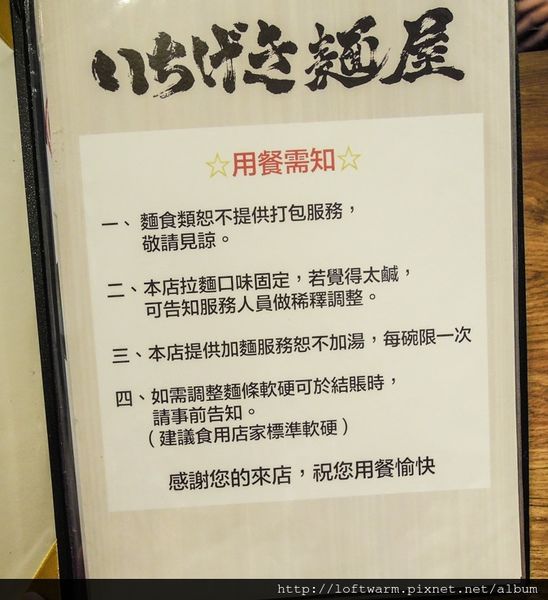 いちげき麵屋
☆用餐需知☆
一、麵食類恕不提供打包服務，
敬請見諒。
二、本店拉麵口味固定，若覺得太鹹，
可告知服務人員做稀釋調整。
三、本店提供加麵服務恕不加湯，每碗限一次
四、如需調整麵條軟硬可於結賬時，
請事前告知。
（建議食用店家標準軟硬）
感謝您的來店，祝您用餐愉快
http://loftwarm.pixnet.net/album